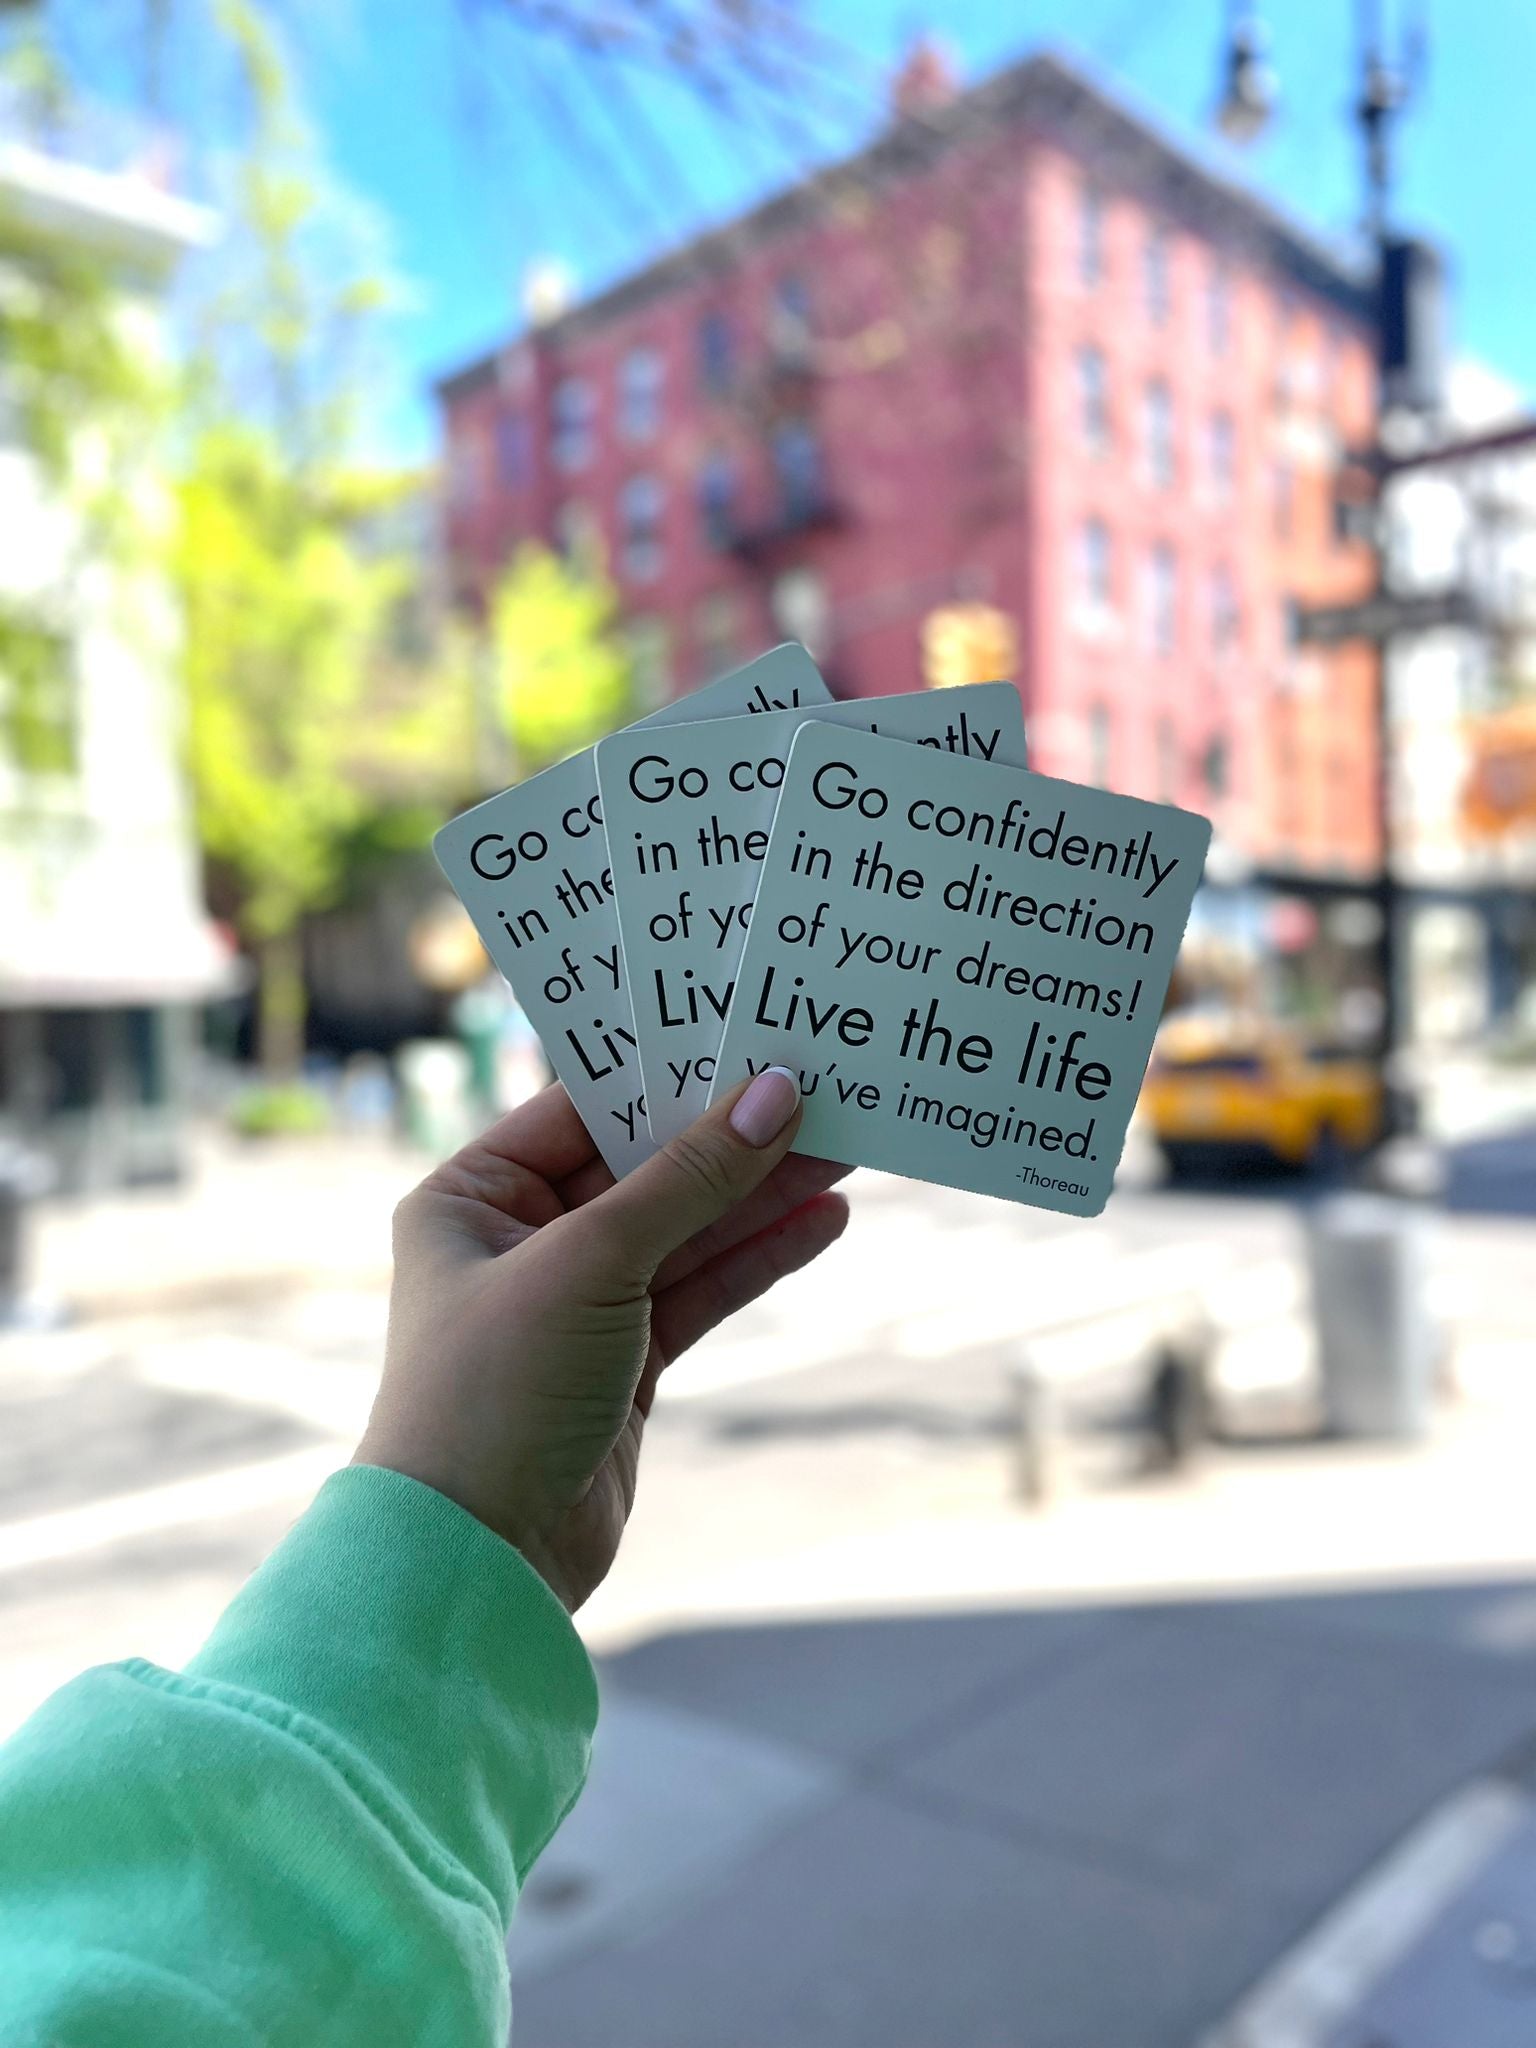 Go confidently
in the direction
of your dreams!
Live the life
you've imagined.
-Thoreau
Go co
in the
of yo
Liv
yo
ntly
Go co
in the
of y
Liv
yo
tly